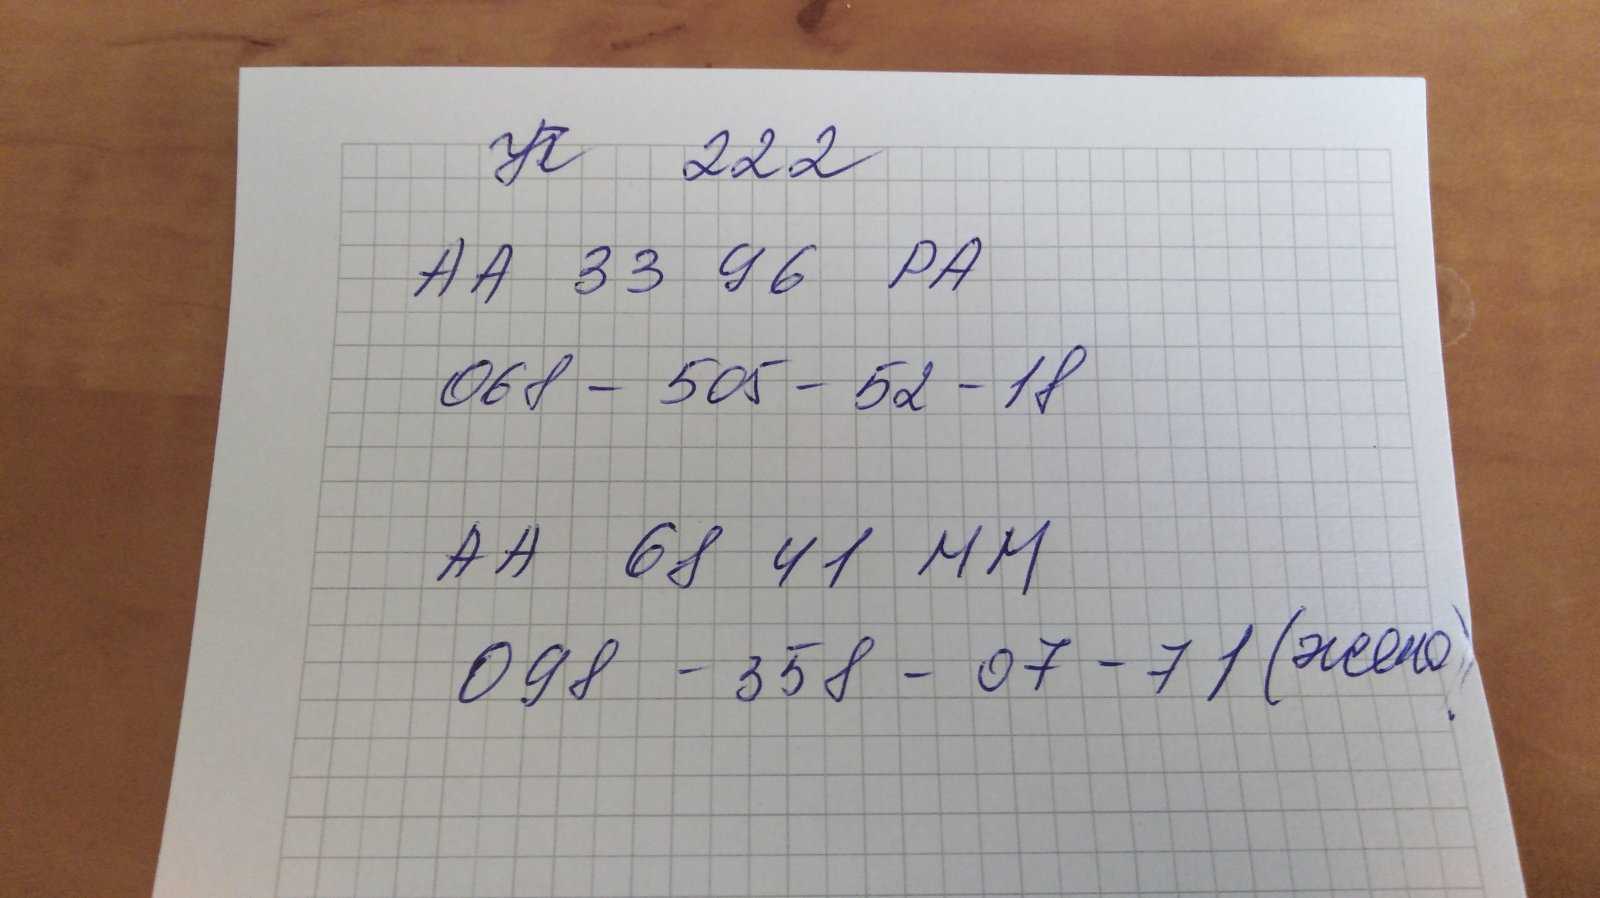 222
АА 33 96 РА
068 - 505 - 52 - 18
АА 68 41 ММ
098 - 358 - 07 - 71 (жена)